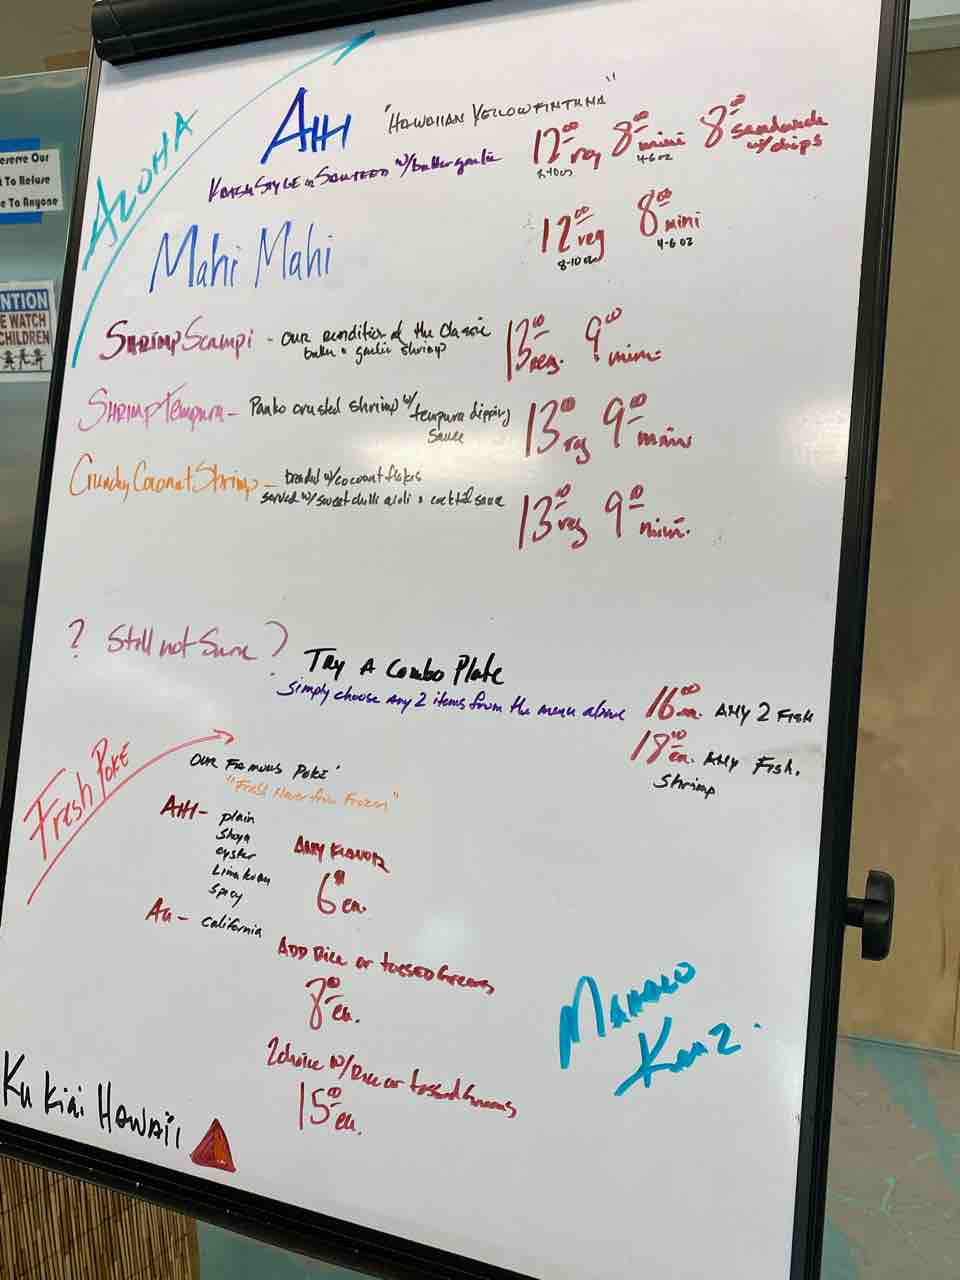 eserve Our
To Refuse
e To Anyone
NTION
E WATCH
CHILDREN
ALOHA
AHI "HAWAIIAN YELLOWFIN TUNA"
KATSU STYLE or SAUTEED w/ butter garlic
12.00 reg 8.00 mini 8.00 sandwich w/ chips
8-10oz 4-6 oz
Mahi Mahi 12.00 reg 8.00 mini
8-10oz 4-6 oz
Shrimp Scampi - our rendition of the Classic
butter & garlic shrimp
13.00 reg. 9.00 mini
Shrimp Tempura - Panko crusted shrimp w/ tempura dipping
sauce
13.00 reg 9.00 mini
Crunchy Coconut Shrimp - breaded w/ coconut flakes
served w/ sweet chilli aioli & cocktail sauce
13.00 reg 9.00 mini.
? Still not Sure?
Try A Combo Plate
Simply choose Any 2 items from the menu above
16.00 ea. ANY 2 FISH
18.00 ea. ANY FISH.
Shrimp
FRESH POKE
OUR FAMOUS POKE
"Fresh Never from Frozen"
AHI - plain
Shoyu
oyster
Limu
Spicy
ANY FLAVOR
6 ea.
california
ADD RICE or TOSSED GREENS
8.00 ea.
2 choice w/ RICE or tossed Greens
15.00 ea.
MAHALO
Ku Kiai HAWAII